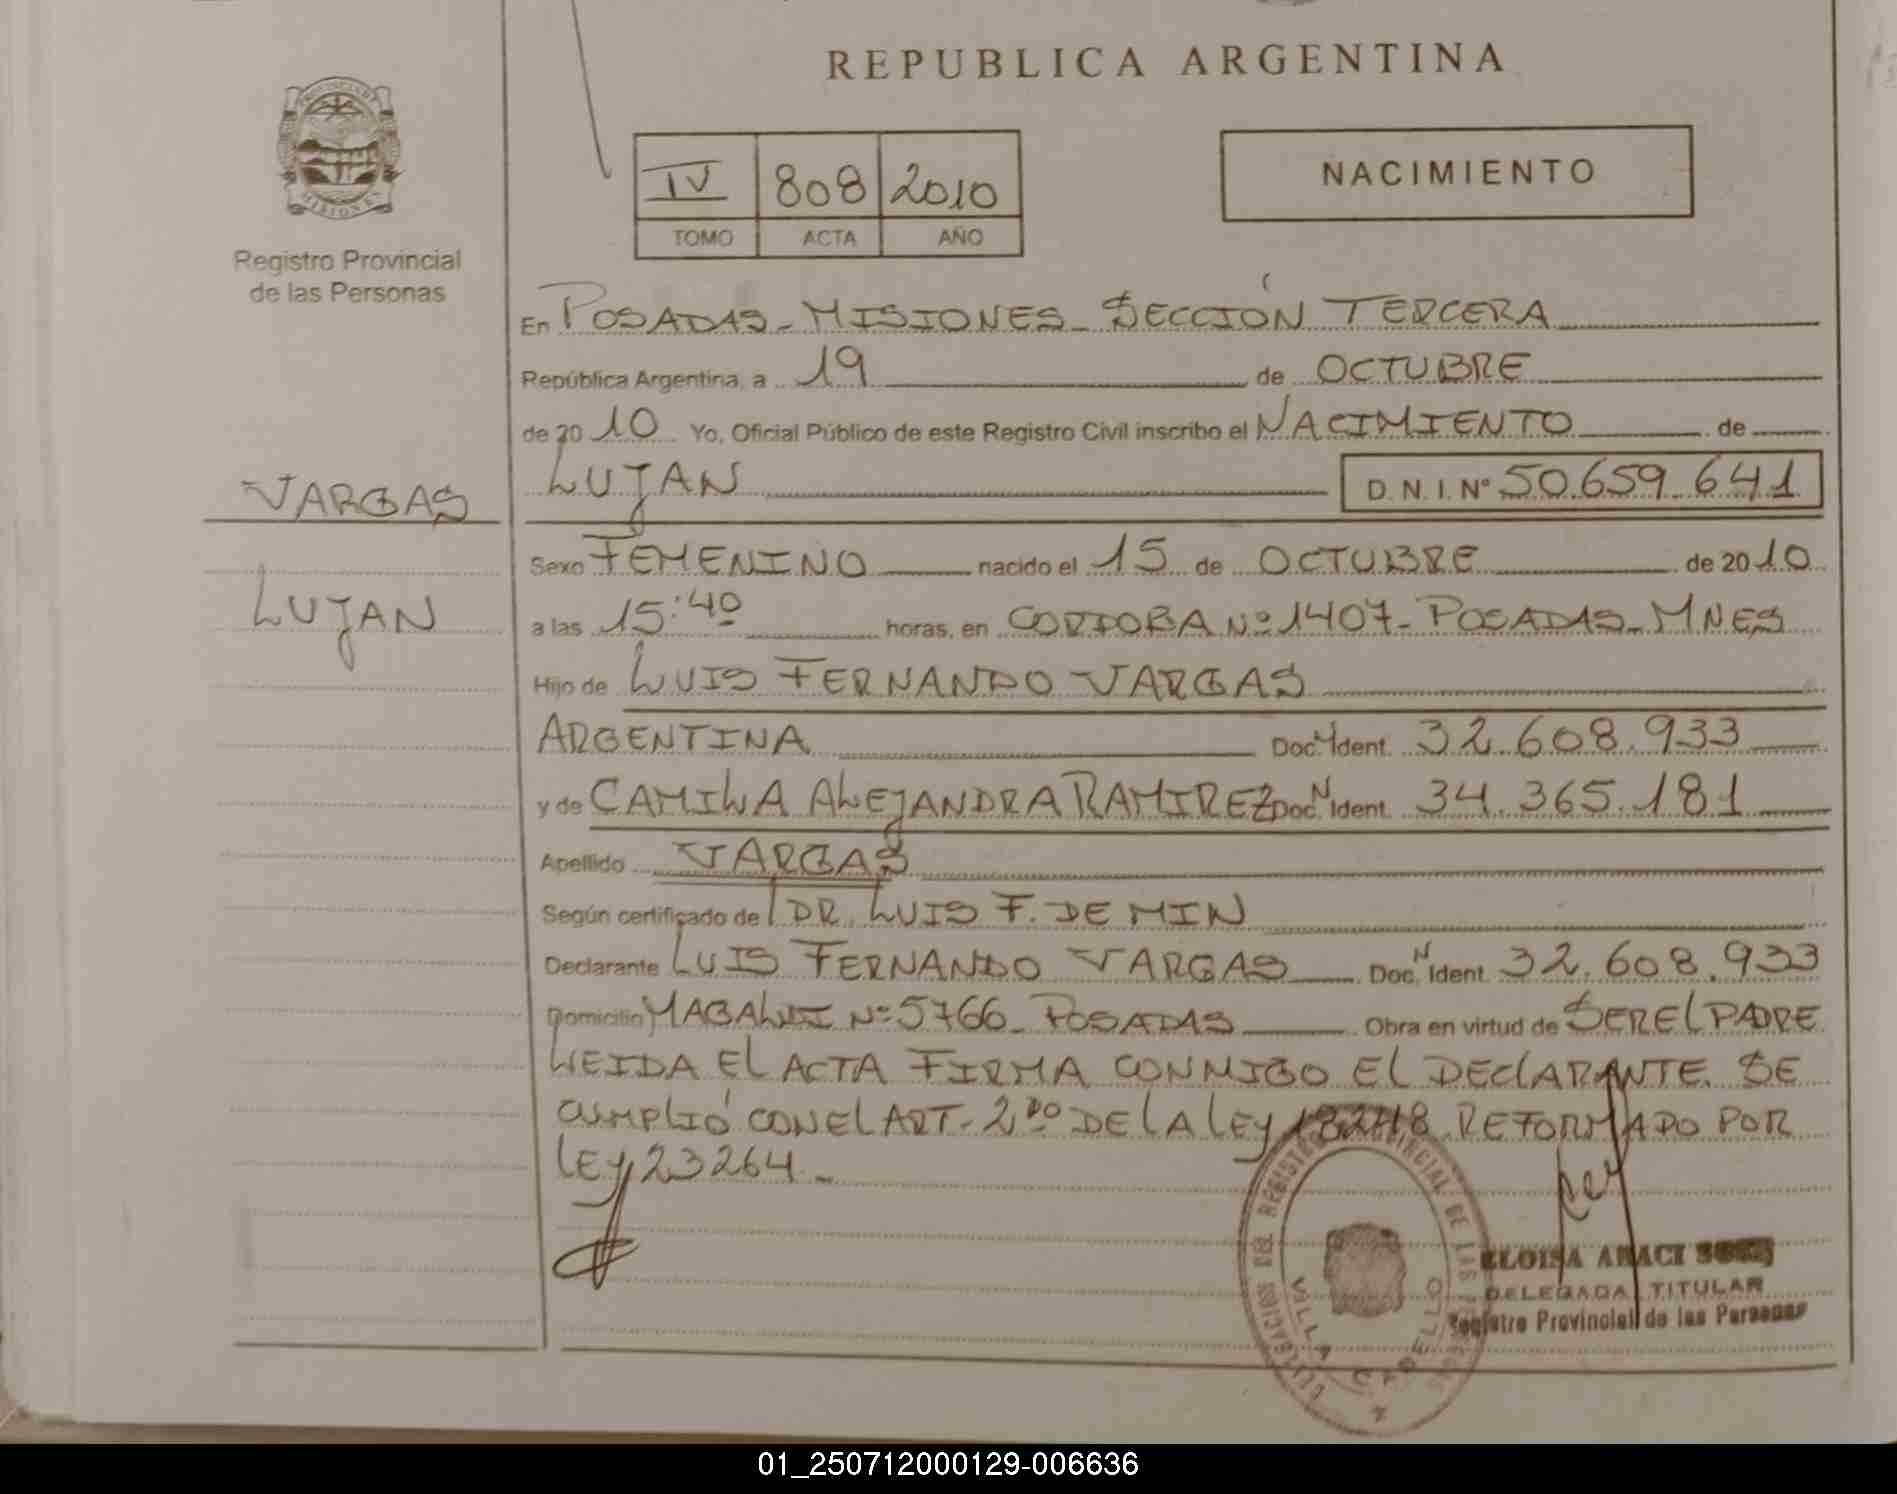 REPUBLICA ARGENTINA
PROVINCIA DE
MISIONES
Registro Provincial
de las Personas
IV 808 2010
TOMO ACTA AÑO
NACIMIENTO
En POSADAS - MISIONES - SECCIÓN TERCERA
República Argentina, a 19 de OCTUBRE
de 20 10 Yo, Oficial Público de este Registro Civil inscribo el NACIMIENTO de
LUJAN D.N.I. Nº 50.659.641
VARGAS
LUJAN
Sexo FEMENINO nacido el 15 de OCTUBRE de 2010
a las 15:40 horas, en CORDOBA Nº 1407 - POSADAS - MNES
Hijo de LUIS FERNANDO VARGAS
ARGENTINA Doc. N Ident. 32.608.933
y de CAMILA ALEJANDRA RAMIREZ Doc. N Ident. 34.365.181
Apellido VARGAS
Según certificado de DR. LUIS F. DEMIN
Declarante LUIS FERNANDO VARGAS Doc. N Ident. 32.608.933
Domicilio Nº 5766 - POSADAS Obra en virtud de SER EL PADRE
LEIDA EL ACTA FIRMA CONMIGO EL DECLARANTE. SE
CUMPLIÓ CON EL ART. 2do DE LA LEY 18248 REFORMADO POR
LEY 23264.-
DEL REGISTRO PROVINCIAL DE LAS
VILLA CABELLO
ELOISA ARACI
DELEGADA TITULAR
Registro Provincial de las Personas
01_250712000129-006636